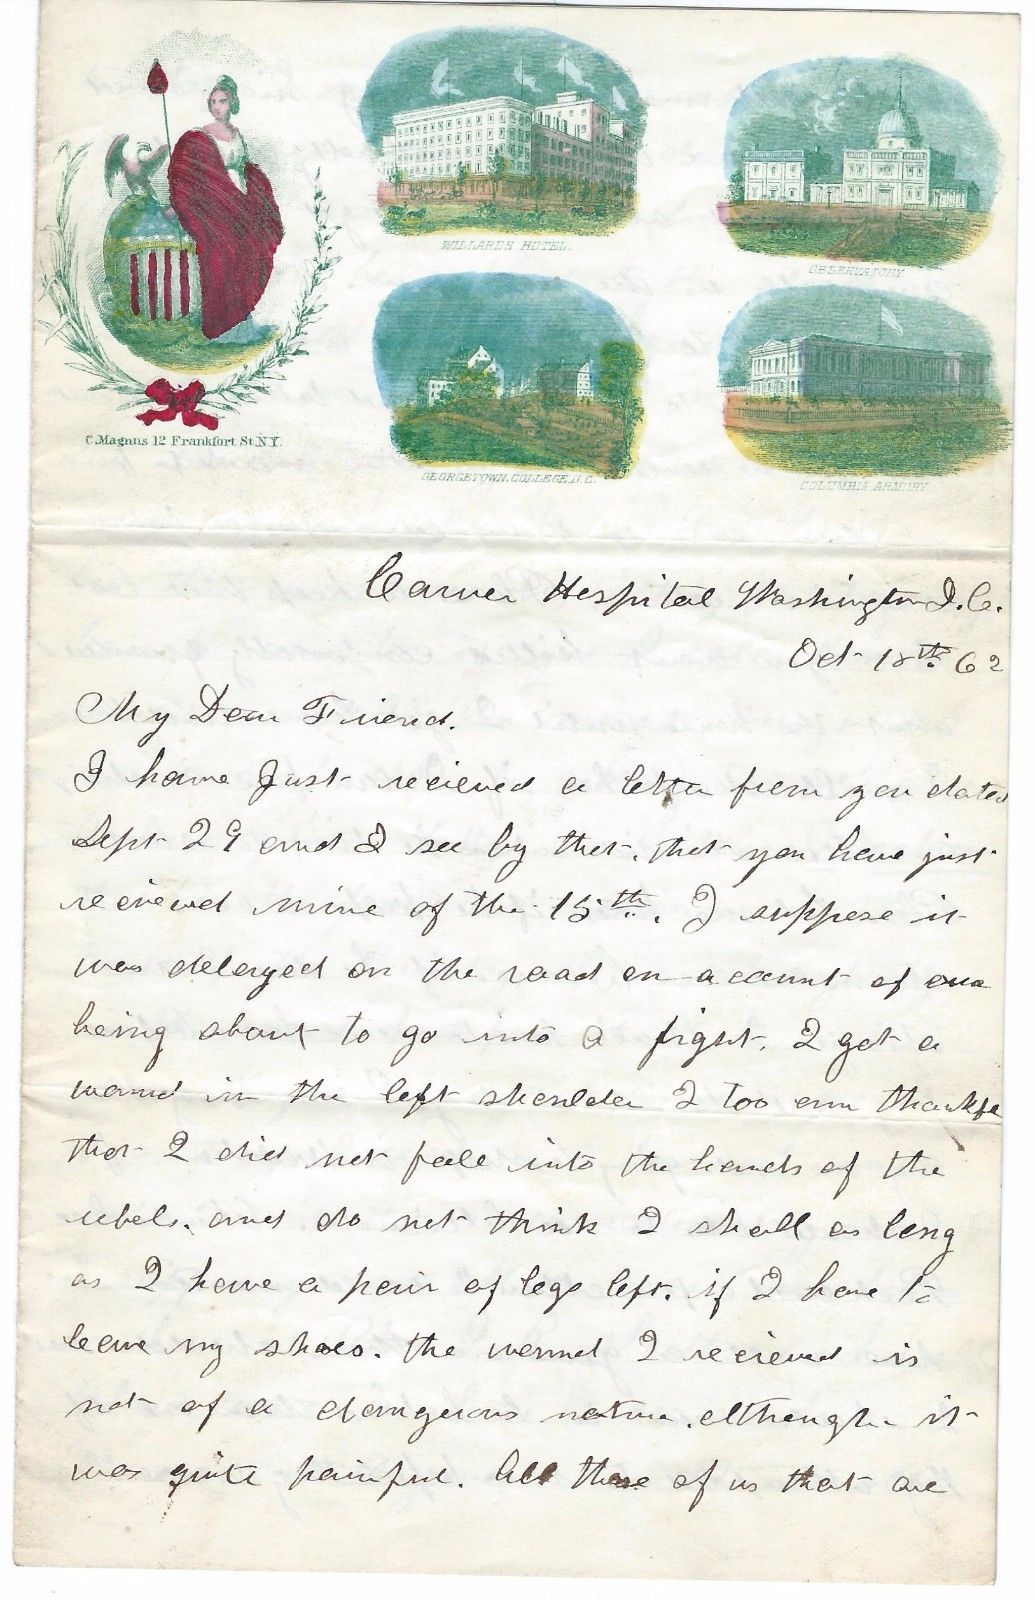 WILLARDS HOTEL.
OBSERVATORY
GEORGETOWN. COLLEGE. D.C.
COLUMBIA ARMORY
C. Magnus 12 Frankfort St. N.Y.
Carver Hospital Washington D. C.
Oct 18th 62
My Dear Friend.
I have Just recieved a letter from you dated
Sept 29 and I see by that. that you have just
recieved mine of the 15th. I suppose it
was delayed on the road on account of our
being about to go into a fight. I got a
wound in the left shoulder I too am thankful
that I did not fall into the hands of the
rebels. and do not think I shall as long
as I have a pair of legs left. if I have to
leave my shoes. the wound I recieved is
not of a dangerous nature. although it
was quite painful. All those of us that are